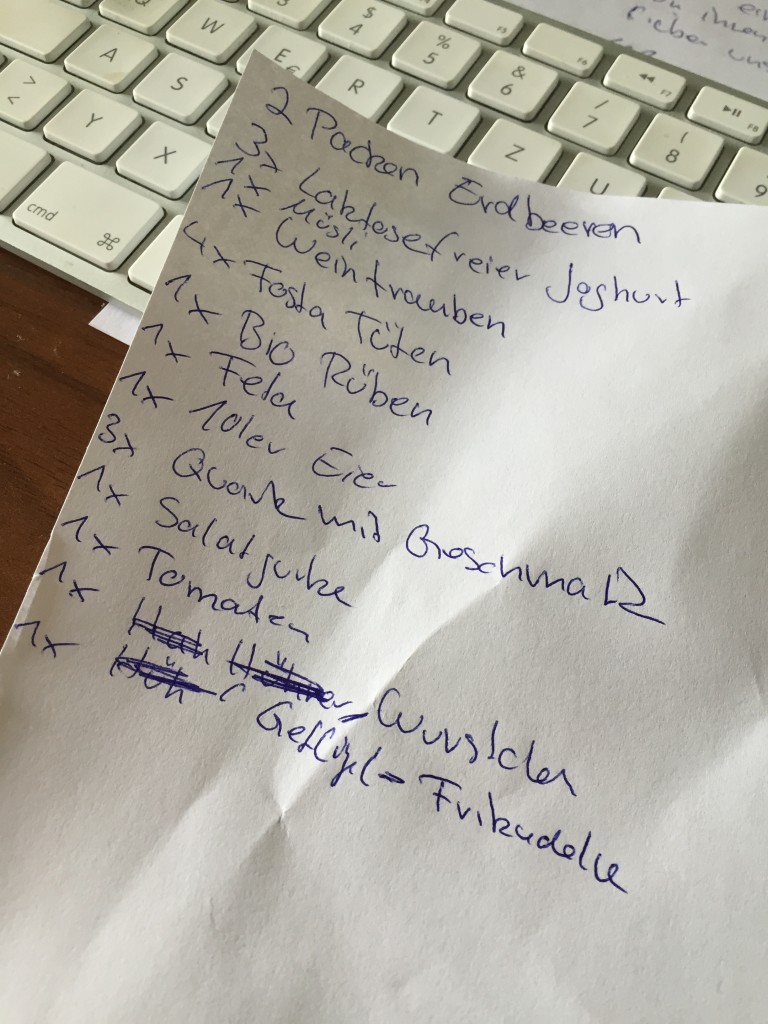 Q
W
E
R
T
Z
U
A
S
Y
X
> <
$ 4
% 5
& 6
/ 7
( 8
9
F5
F6
F7
F8
cmd ⌘
2 Packen Erdbeeren
3x Laktosefreier Joghurt
1x Müsli
1x Weintrauben
4x Fosta Tüten
1x Bio Rüben
1x Feta
1x 10ler Eier
3x Quark mit Geschmack
1x Salatgurke
1x Tomaten
1x Würstchen
1x Geflügel= Frikadelle